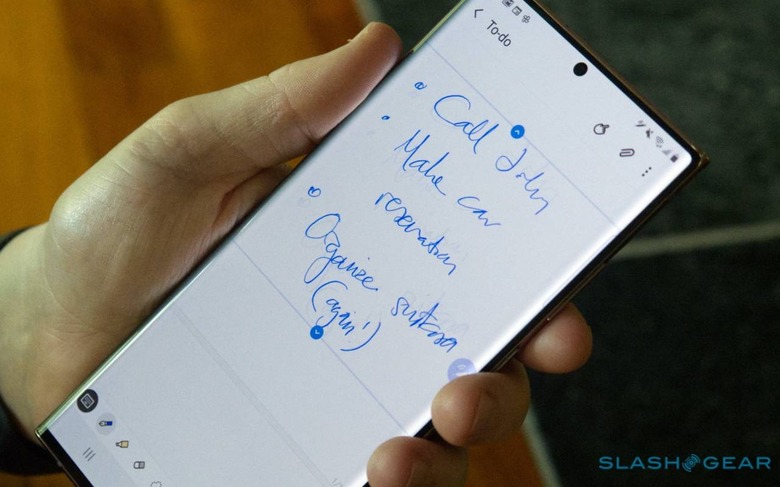 To-do
Call John
Make car
reservation
Organize suitcase
(again!)
SLASHGEAR